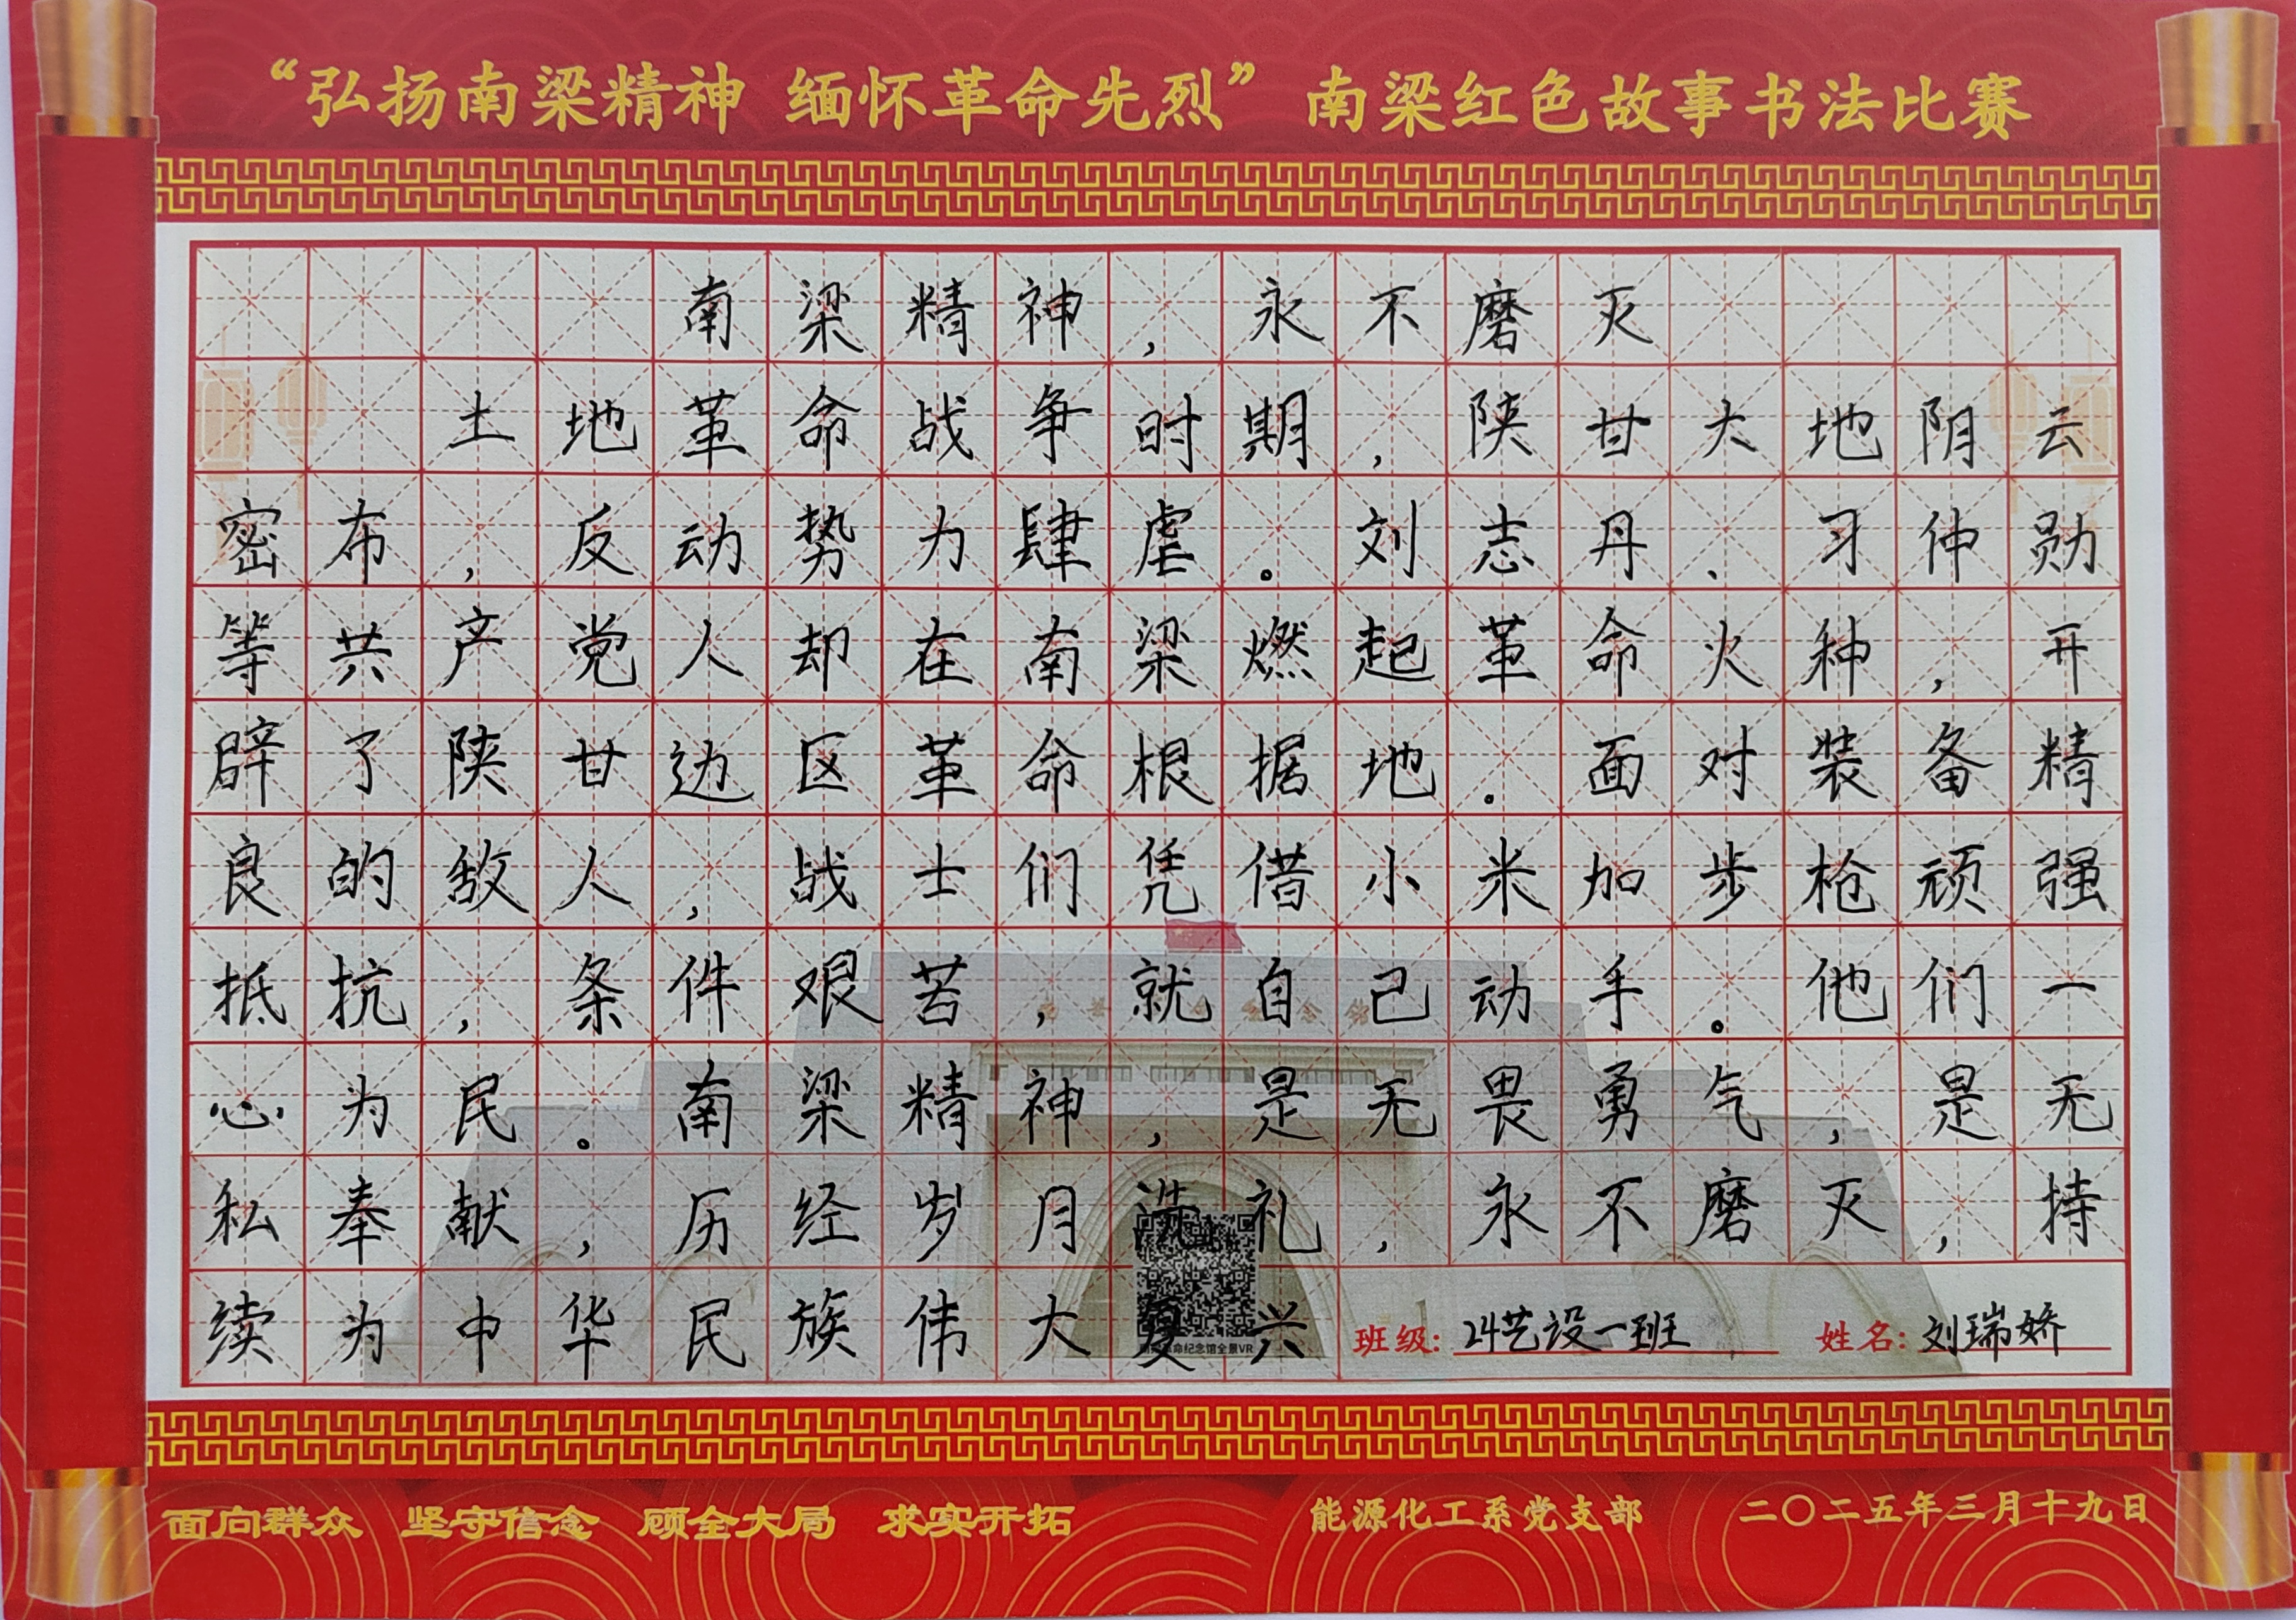 “弘扬南梁精神 缅怀革命先烈”南梁红色故事书法比赛
南梁精神，永不磨灭
土地革命战争时期，陕甘大地阴云
密布，反动势力肆虐。刘志丹、习仲勋
等共产党人却在南梁燃起革命火种，开
辟了陕甘边区革命根据地。面对装备精
良的敌人，战士们凭借小米加步枪顽强
抵抗，条件艰苦，就自己动手。他们一
心为民。南梁精神，是无畏勇气，是无
私奉献，历经岁月洗礼，永不磨灭，持
续为中华民族伟大复兴
班级：24艺设一班 姓名：刘瑞娇
面向群众 坚守信念 顾全大局 求实开拓 能源化工系党支部 二〇二五年三月十九日